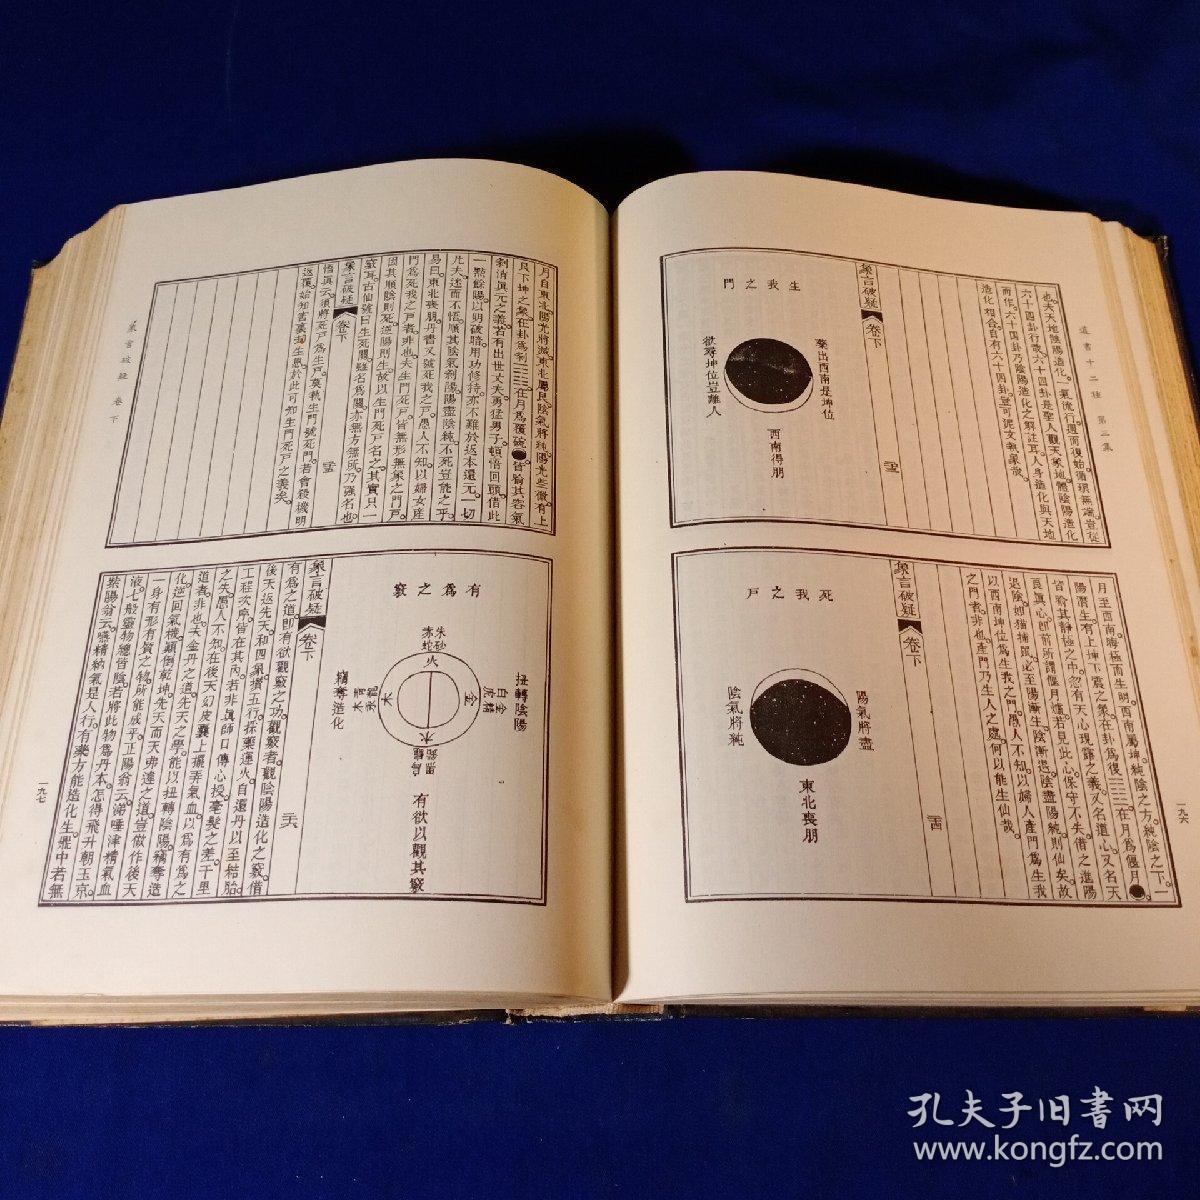 道書十二種 第三集
也。夫天地陰陽造化。一氣流行。週而復始。循環無端。豈從
六十四卦行哉。六十四卦是聖人觀天象地。體陰陽造化
而作。六十四卦乃陰陽造化之解註耳。人身造化與天地
造化相合。自有六十四卦。豈可泥文執象哉。
象言破疑 卷下
生我之門
藥出西南是坤位
欲尋坤位豈離人
西南得朋
月至西南。晦極而生明。西南屬坤。純陰之方。純陰之下。一
陽潛生。有上坤下震之象。在卦爲復☷☳在月爲偃月
皆喻其靜極之中。忽有天心現露之義。又名道心。又名天
良眞心。卽前所謂偃月爐。若見此心。保守不失。借之進陽
退陰。如猫捕鼠。必至陽漸生。陰漸退。陰盡陽純則仙矣。故
以西南坤位爲生我之門。愚人不知。以婦人產門爲生我
之門者。非也。產門乃生人之處。何可以能生仙哉。
象言破疑 卷下
死我之戶
陽氣將盡
陰氣將純
東北喪朋
一九六
月自東北。陽光將滅。東北屬艮。陰氣將純。陽光些微。有上
艮下坤之象。在卦爲剝☶☷在月爲覆碗 皆喻其客氣
剝消眞元之義。若有出世丈夫。勇猛男子。頓悟回頭。借此
一點餘陽。以明破暗。用功修持。亦不難於返本還元。一切
凡夫。迷而不悟。順其陰氣剝陽。陽盡陰純。不死豈能之乎。
易曰。東北喪朋。丹書又號死我之戶。愚人不知。以婦女產
門爲死我之戶者。非也。夫生門死戶。皆無形無象之門戶。
因其順陰則死。逆陽則生。故以生門死戶名之。其實只一
竅耳。古仙號曰生死關。雖名爲關。亦無方無所。乃強名也。
象言破疑 卷下
悟眞云。須將死戶爲生戶。莫執生門號死門。若會殺機明
返覆。始知害裏卻生恩。於此可知生門死戶之義矣。
象言破疑 卷下
有爲之竅
扭轉陰陽
竊奪造化
朱砂
赤蛇
火
金
木
水
白金
有欲以觀其竅
象言破疑 卷下
有爲之道。卽有欲觀竅之功。觀竅者。觀陰陽造化之竅。借
後天返先天。和四象。攢五行。採藥運火。自還丹以至結胎。
工程次序。皆在其內。若非眞師口傳心授。毫髮之差。千里
之失。愚人不知。在後天幻皮囊上擺弄氣血。以爲有爲之
道者。非也。夫金丹之道。先天之學。能以扭轉陰陽。竊奪造
化。逆回氣機。顛倒乾坤。先天而天弗違之道。豈做作後天
一身有形有質之物。所能成乎。正陽翁云。涕唾津精氣血
液。七般靈物總皆陰。若將此物爲丹本。怎得飛升朝玉京。
紫陽翁云。嚥精納氣是人行。有藥方能造化生。鼎中若無
一九七
孔夫子旧書网
www.kongfz.com